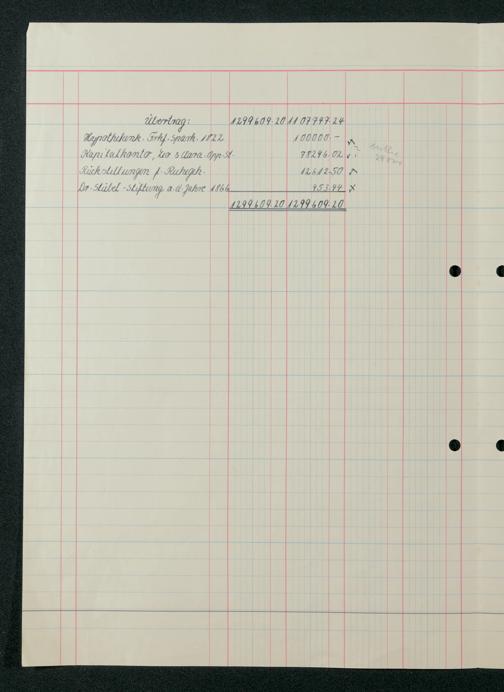 Übertrag: 1299609.20 1107747.24
Hypothekenk. Frkf. Spark. 1822 100000.-
Kapitalkonto, Leo & Clara Opp-St. 78296.02
Rückstellungen f. Ruhegeh. 12612.50
Dr. Stübel-Stiftung a. d. Jahre 1866 953.44 x
1299609.20 1299609.20